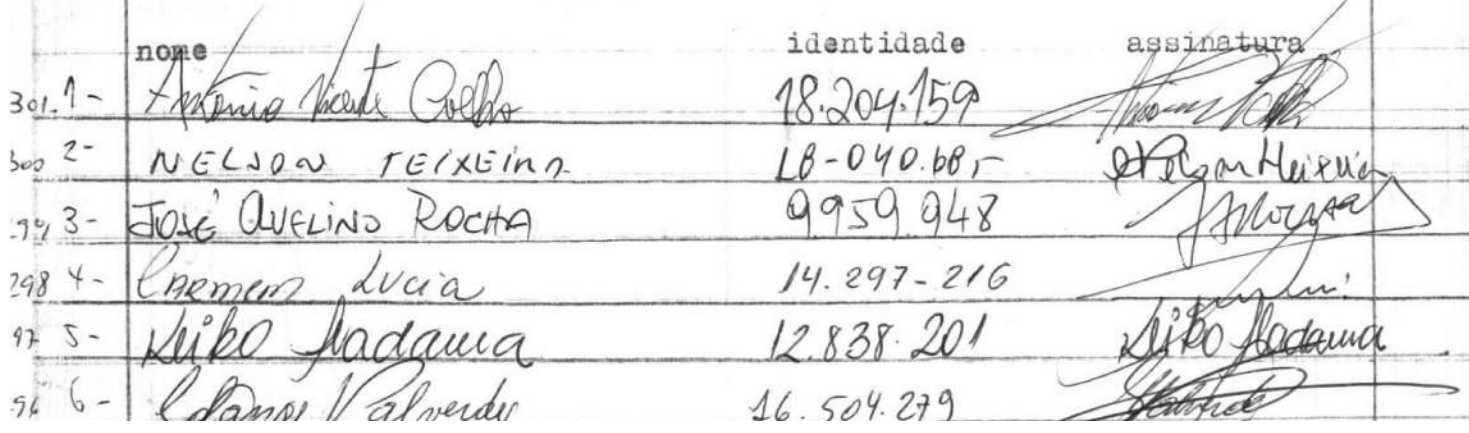 nome identidade assinatura
301. 1- Antonio Vicente Coelho 18.204.159
300 2- NELSON TEIXEIRA Nelson Teixeira
3- JOSÉ AVELINO ROCHA 9959 948
298 4- CARMEM Lucia 14.297-216
97 5- Keiko Hadama 12.838.201 Keiko Hadama
96 6- Valverde 16.504.279